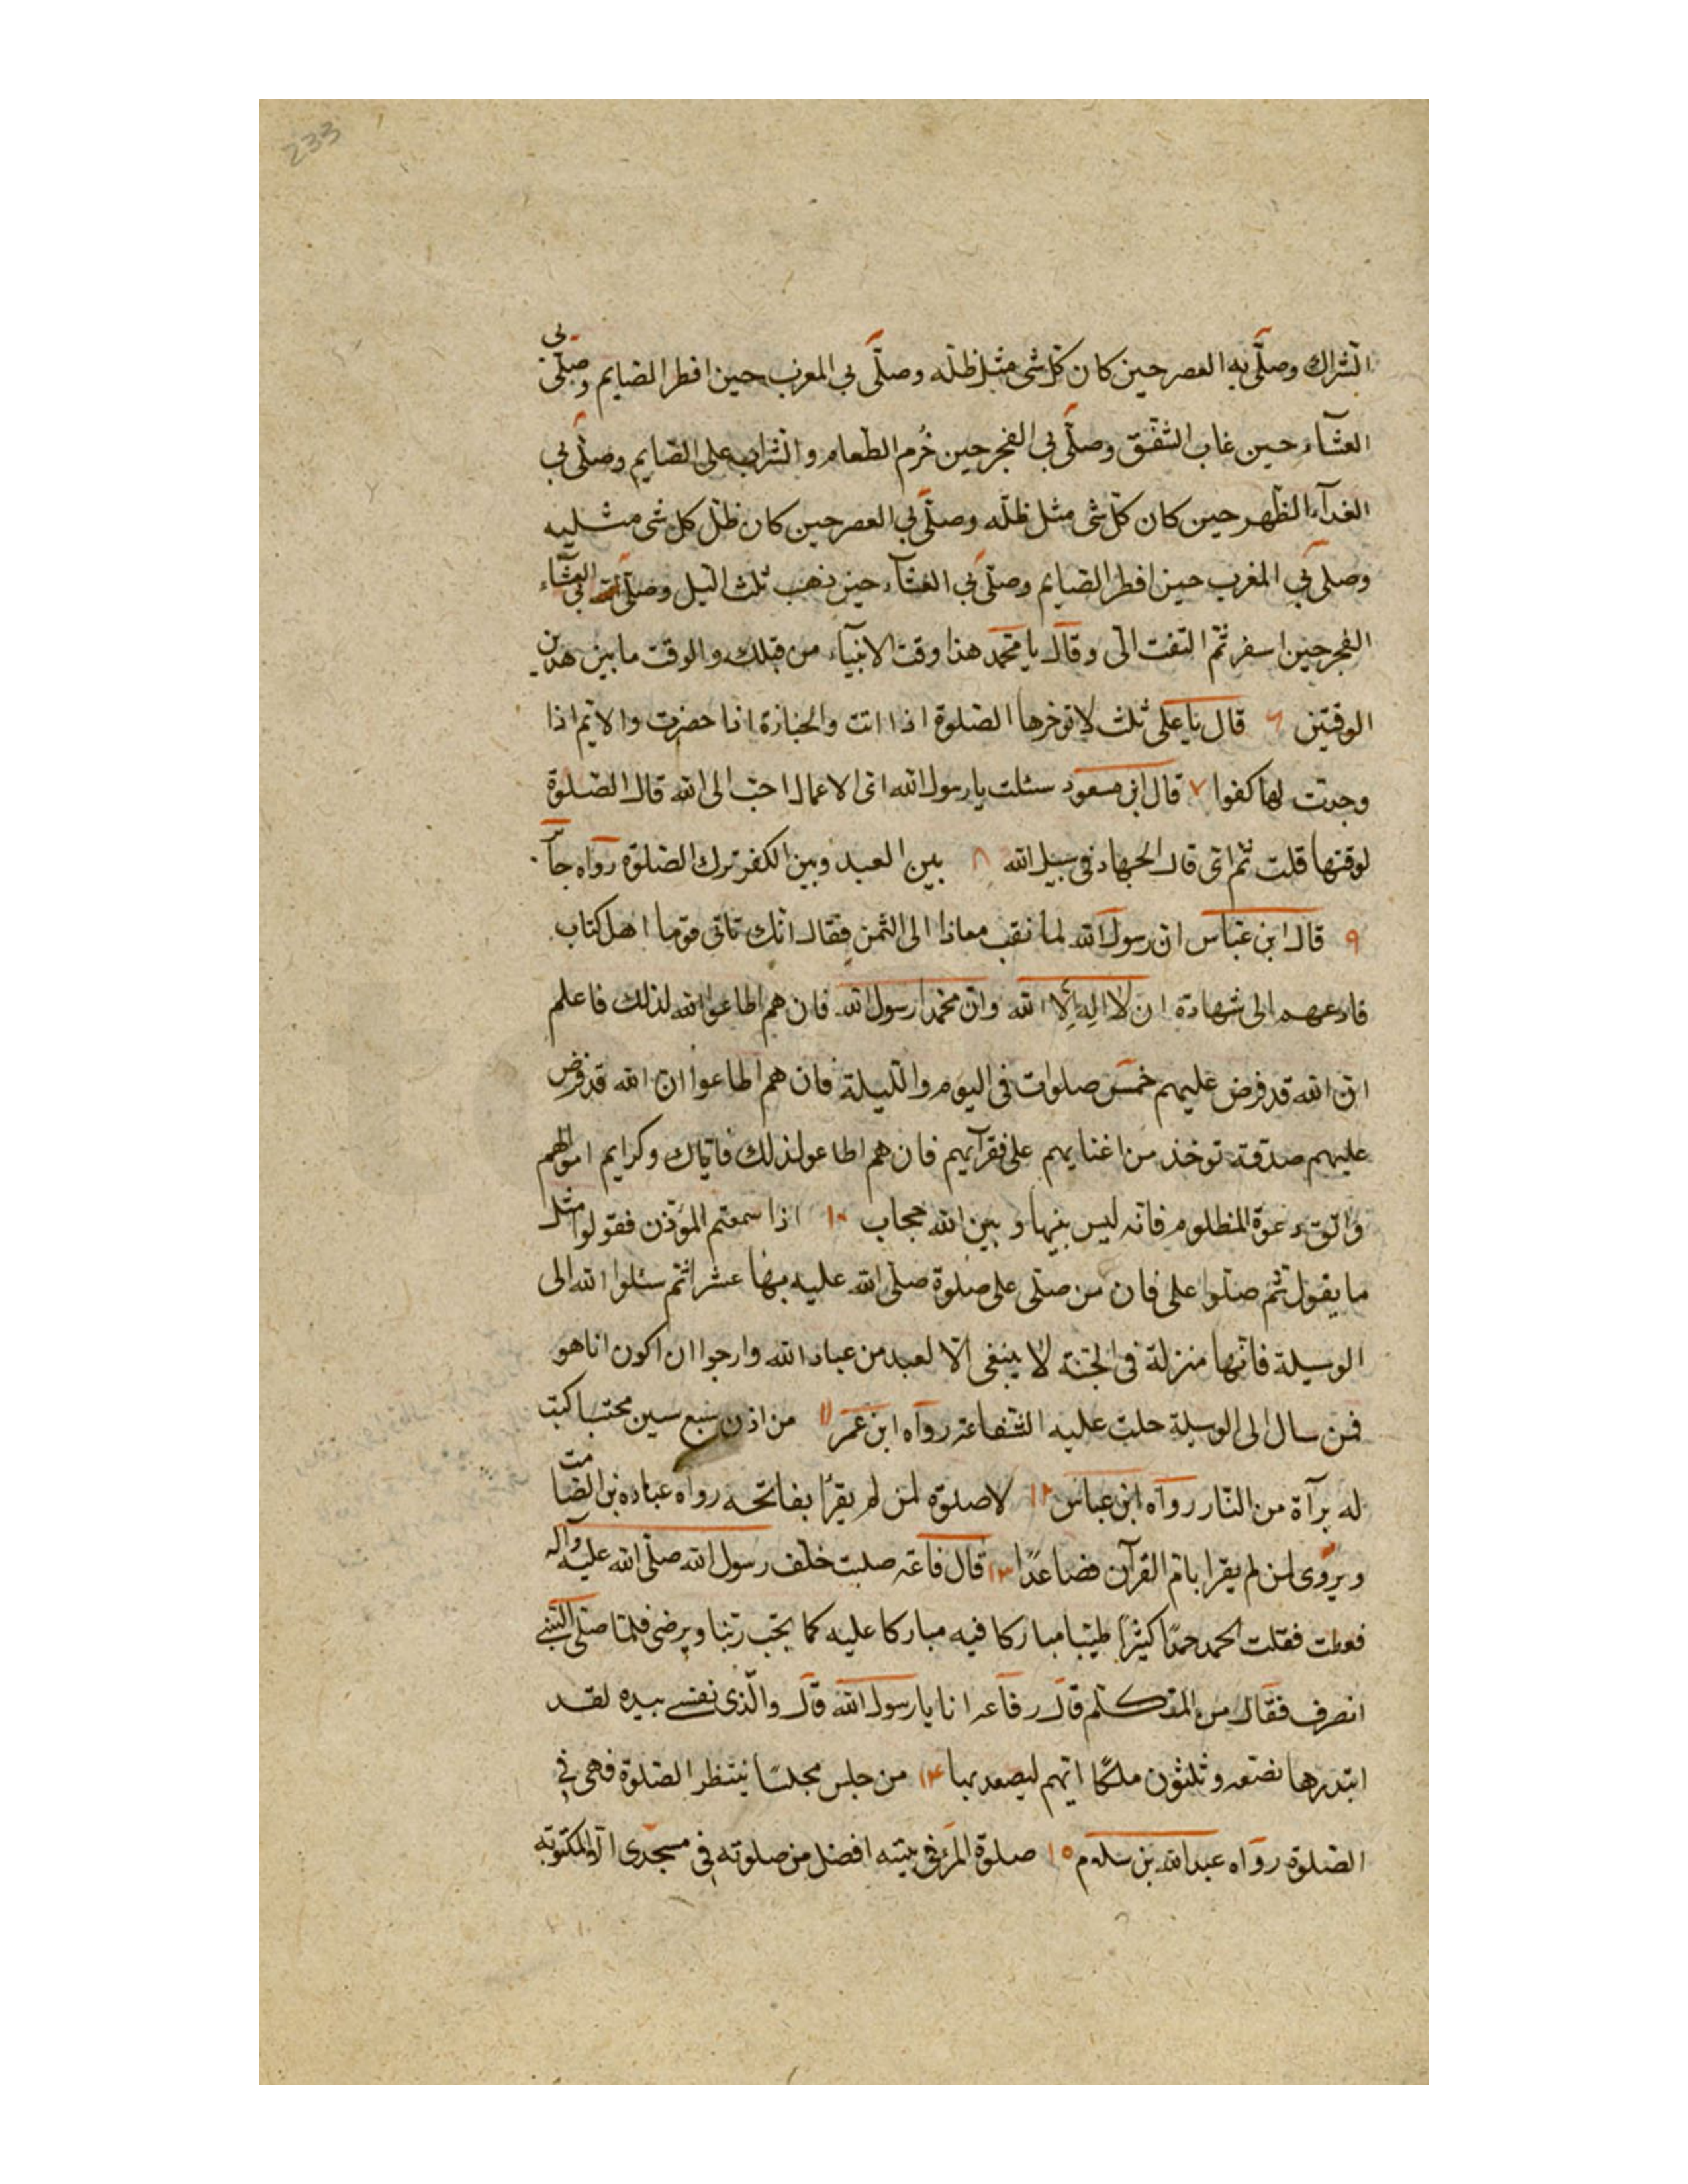 233
الشراك وصلّى به العصر حين كان كلّ شى مثل ظلّه وصلّى بي المغرب حين افطر الصايم وصلّى بي
العشآء حين غاب الشفق وصلّى بي الفجر حين حُرم الطعام والشراب على الصايم وصلّى بي
الغدآء الظهر حين كان كلّ شى مثل ظلّه وصلّى بي العصر حين كان ظلّ كل شى مثليه
وصلى بي المغرب حين افطر الصايم وصلّى بي العشآء حين ذهب ثلث الليل وصلّى بي العشآء
الفجر حين اسفر ثم التفت الىّ وقال يا محمد هذا وقت الانبيآء من قبلك والوقت ما بين هدين
الوقتين ٦ قال يا على ثلث لا توخرها الصلوة اذا اتت والجنازة اذا حضرت والايم اذا
وجدت لها كفوا ٧ قال ابن مسعود سئلت يا رسول الله اى الاعمال احبّ الى الله قال الصلوة
لوقتها قلت ثم اى قال الجهاد فى سبيل الله ٨ بين العبد وبين الكفر ترك الصلوة رواه جابر
٩ قال ابن عباس ان رسول الله لما نقب معاذا الى اليمن فقال انّك تاتى قوما اهل كتاب
فادعهم الى شهادة ان لا اله الا الله وان محمدا رسول الله فان هم اطاعوا الله لذلك فاعلم
ان الله قد فرض عليهم خمس صلوات فى اليوم والليلة فان هم اطاعوا ان الله قد فرض
عليهم صدقة توخذ من اغنايهم على فقرآيهم فان هم اطاعو لذلك فايّاك وكرايم اموالهم
واتّق دعوة المظلوم فانه ليس بينها و بين الله حجاب ١٠ اذا سمعتم المؤذن فقولوا مثل
ما يقول ثم صلّوا على فان من صلّى على صلوة صلى الله عليه بها عشرا ثم سئلوا الله الى
الوسيلة فانّها منزلة فى الجنّة لا ينبغى الّا لعبد من عباد الله وارجوا ان اكون انا هو
فمن سال الى الوسيلة حلت عليه الشفاعة رواه ابن عمر ١١ من اذن سبع سنين محتسبا كتبت
له برآة من النّار رواه ابن عباس ١٢ لا صلوة لمن لم يقرا بفاتحه رواه عباده بن الصامت
ويروى لمن لم يقرا بام القرآن فصاعدًا ١٣ قال فاعه صليت خلف رسول الله صلّى الله عليه واله
فعطت فقلت الحمد حمدًا كثيرًا طيّبا مباركا فيه مباركا عليه كما يحّب ربّنا ويرضى فلمّا صلى النبى
انصرف فقال من المتكلم قال رفاعه انا يا رسول الله قال والّذى نفسى بيده لقد
ابتدرها بضعه و ثلثون ملكًا ايّهم ليصعد بها ١٤ من جلس مجلسًا ينتظر الصلوة فهى فى
الصلوة رواه عبد الله بن سلام ١٥ صلوة المرء فى بيته افضل من صلوته فى مسجدى الا المكتوبه